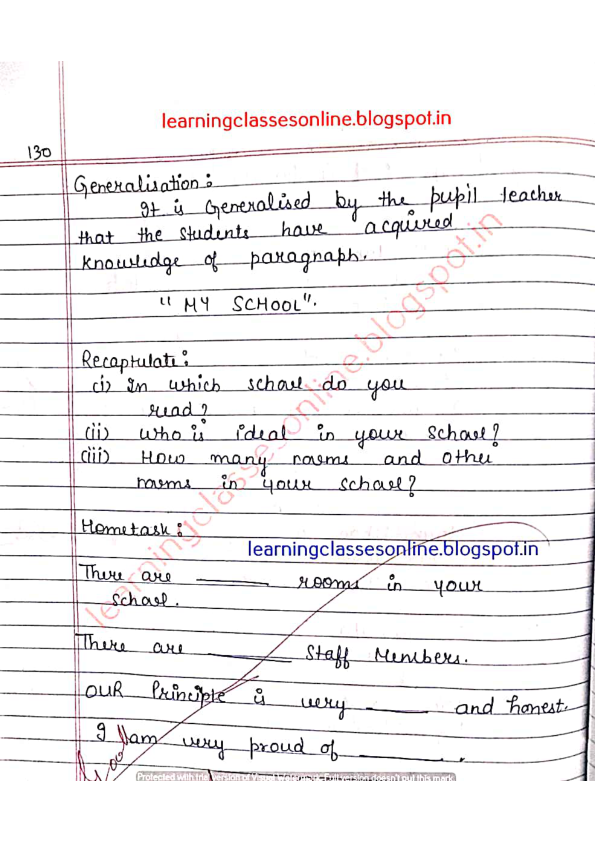 learningclassesonline.blogspot.in
130
Generalisation:
It is Generalised by the pupil teacher
that the students have acquired
knowledge of paragraph.
learningclassesonline.blogspot.in
"MY SCHOOL".
Recaptulate:
(i) In which school do you
read?
(ii) who is ideal in your school?
(iii) How many rooms and other
rooms in your school?
Hometask:
learningclassesonline.blogspot.in
There are ______ rooms in your
school.
There are ______ Staff Members.
OUR Principle is very ______ and honest.
I am very proud of ______.
Protected with trial version of Visual Watermark. Full version doesn't put this mark.